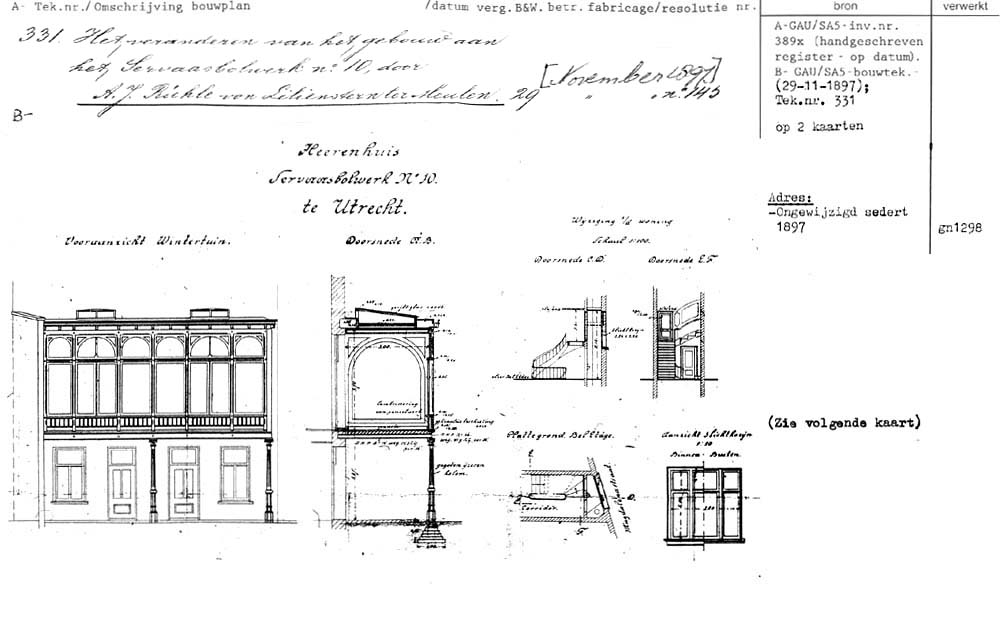 A- Tek.nr./Omschrijving bouwplan /datum verg.B&W. betr. fabricage/resolutie nr. bron verwerkt
331. Het veranderen van het gebouw aan
het Servaasbolwerk nº 10, door
A. J. Rüchle von Lilienstern ter Meulen. 29 [November 1897] " " nº 145
B-
A-GAU/SA5-inv.nr.
389x (handgeschreven
register - op datum).
B- GAU/SA5-bouwtek.-
(29-11-1897);
Tek.nr. 331
op 2 kaarten
Adres:
-Ongewijzigd sedert
1897
gn1298
(Zie volgende kaart)
Heerenhuis
Servaasbolwerk Nº 10.
te Utrecht.
Vooraanzicht Wintertuin.
Doorsnede A.B.
Wijziging v/d woning
Schaal 1:100.
Doorsnede C.D.
Doorsnede E.F
gegoten ijzeren
kolom.
Plattegrond Bel Etage.
Corridor.
Aanzicht Lichtkozijn
1:20
Binnen- Buiten.